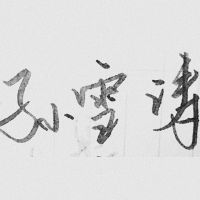 孙雪涛